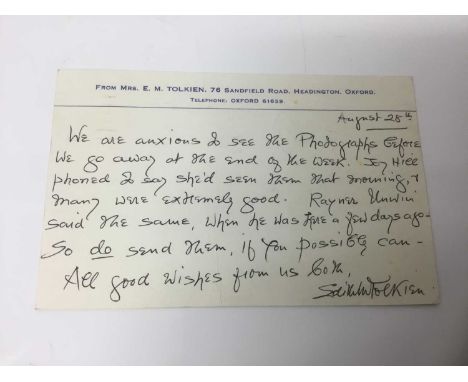 FROM MRS. E. M. TOLKIEN, 76 SANDFIELD ROAD, HEADINGTON, OXFORD.
TELEPHONE: OXFORD 61639
August 28th
We are anxious to see the Photographs before
We go away at the end of the week. Joy Hill
phoned to say she'd seen them that morning, &
many were extremely good. Rayner Unwin
said the same, when he was here a few days ago-
So do send them, if you possibly can-
All good wishes from us both,
Edith Tolkien